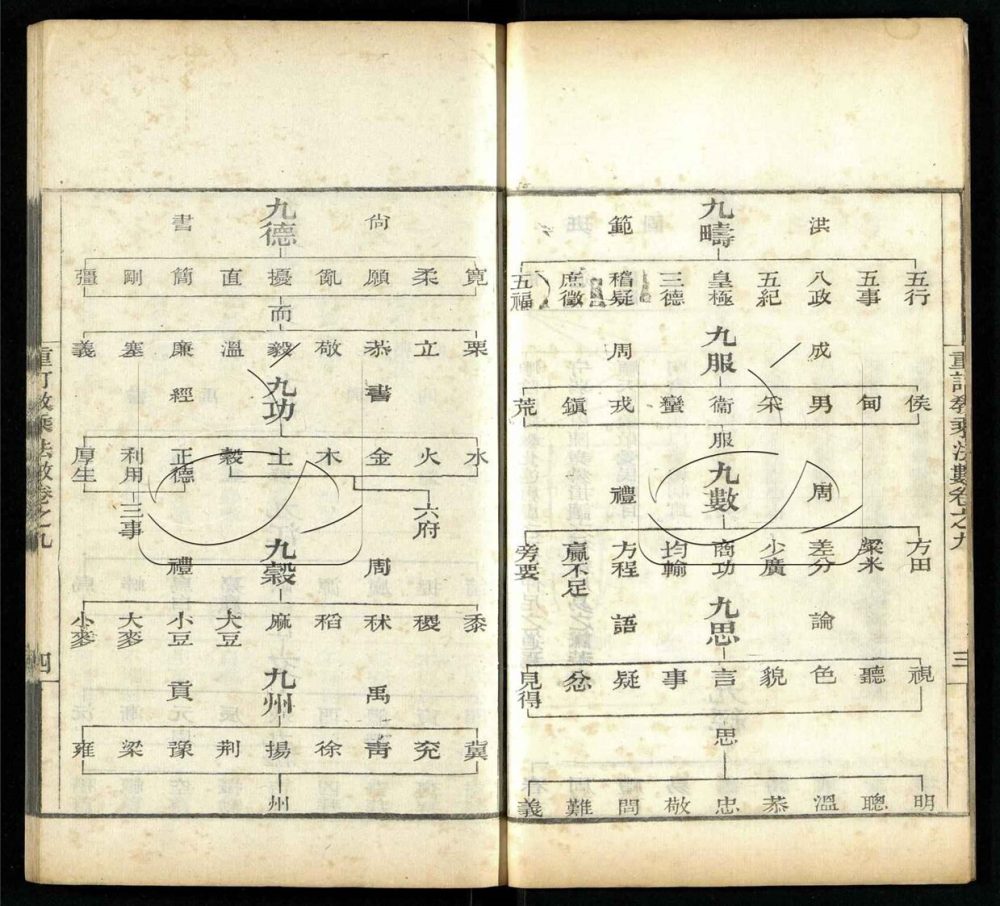 洪範
九疇
五行 五事 八政 五紀 皇極 三德 稽疑 庶徵 五福
周成
九服
侯 甸 男 采 衞 蠻 戎 鎭 荒
服
周禮
九數
方田 粟米 差分 少廣 商功 均輸 方程 贏不足 旁要
論語
九思
視 聽 色 貌 言 事 疑 忿 見得
思
明 聰 溫 恭 忠 敬 問 難 義
重訂敎乘法數卷之九
三
尙書
九德
寬 柔 愿 亂 擾 直 簡 剛 彊
而
栗 立 恭 敬 毅 溫 廉 塞 義
書經
九功
水 火 金 木 土 穀 正德 利用 厚生
六府
三事
周禮
九穀
黍 稷 秫 稻 麻 大豆 小豆 大麥 小麥
禹貢
九州
冀 兗 靑 徐 揚 荆 豫 梁 雍
州
重訂敎乘法數卷之九
四